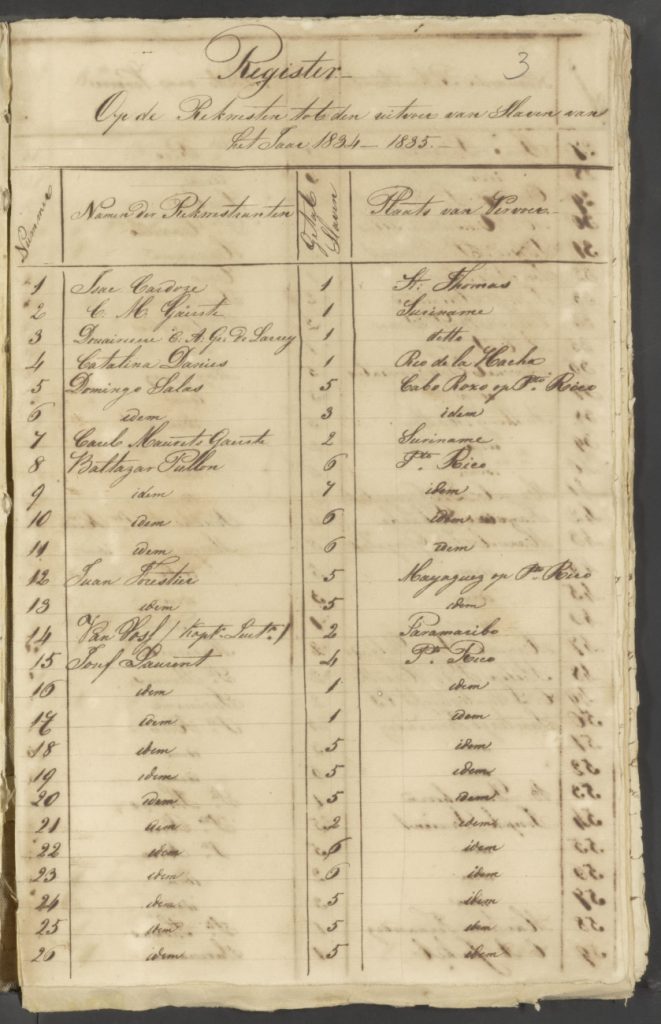 3
Register
Op de Rekwesten tot den uitvoer van Slaven van
het Jaar 1834 - 1835.-
Nummer Namen der Rekwestranten Getal Slaven Plaats van Vervoer
1 Isac Cardoze 1 St. Thomas
2 C. M. Gaerste 1 Suriname
3 Douairiere C. A. Gs. de Larrey 1 detto
4 Catalina Danies 1 Rio de la Hacha
5 Domingo Salas 5 Cabo Roxo op Pto. Rico
6 idem 3 idem
7 Carel Maurits Gaerste 2 Suriname
8 Baltazar Pullon 6 Pto. Rico
9 idem 7 idem
10 idem 6 idem
11 idem 6 idem
12 Juan Forestier 5 Mayaguez op Pto. Rico
13 idem 5 idem
14 Van Voss / Kapt. / 2 Paramaribo
15 Josef Laurent 4 Pto. Rico
16 idem 1 idem
17 idem 1 idem
18 idem 5 idem
19 idem 5 idem
20 idem 5 idem
21 idem 2 idem
22 idem 6 idem
23 idem 6 idem
24 idem 5 idem
25 idem 5 idem
26 idem 5 idem